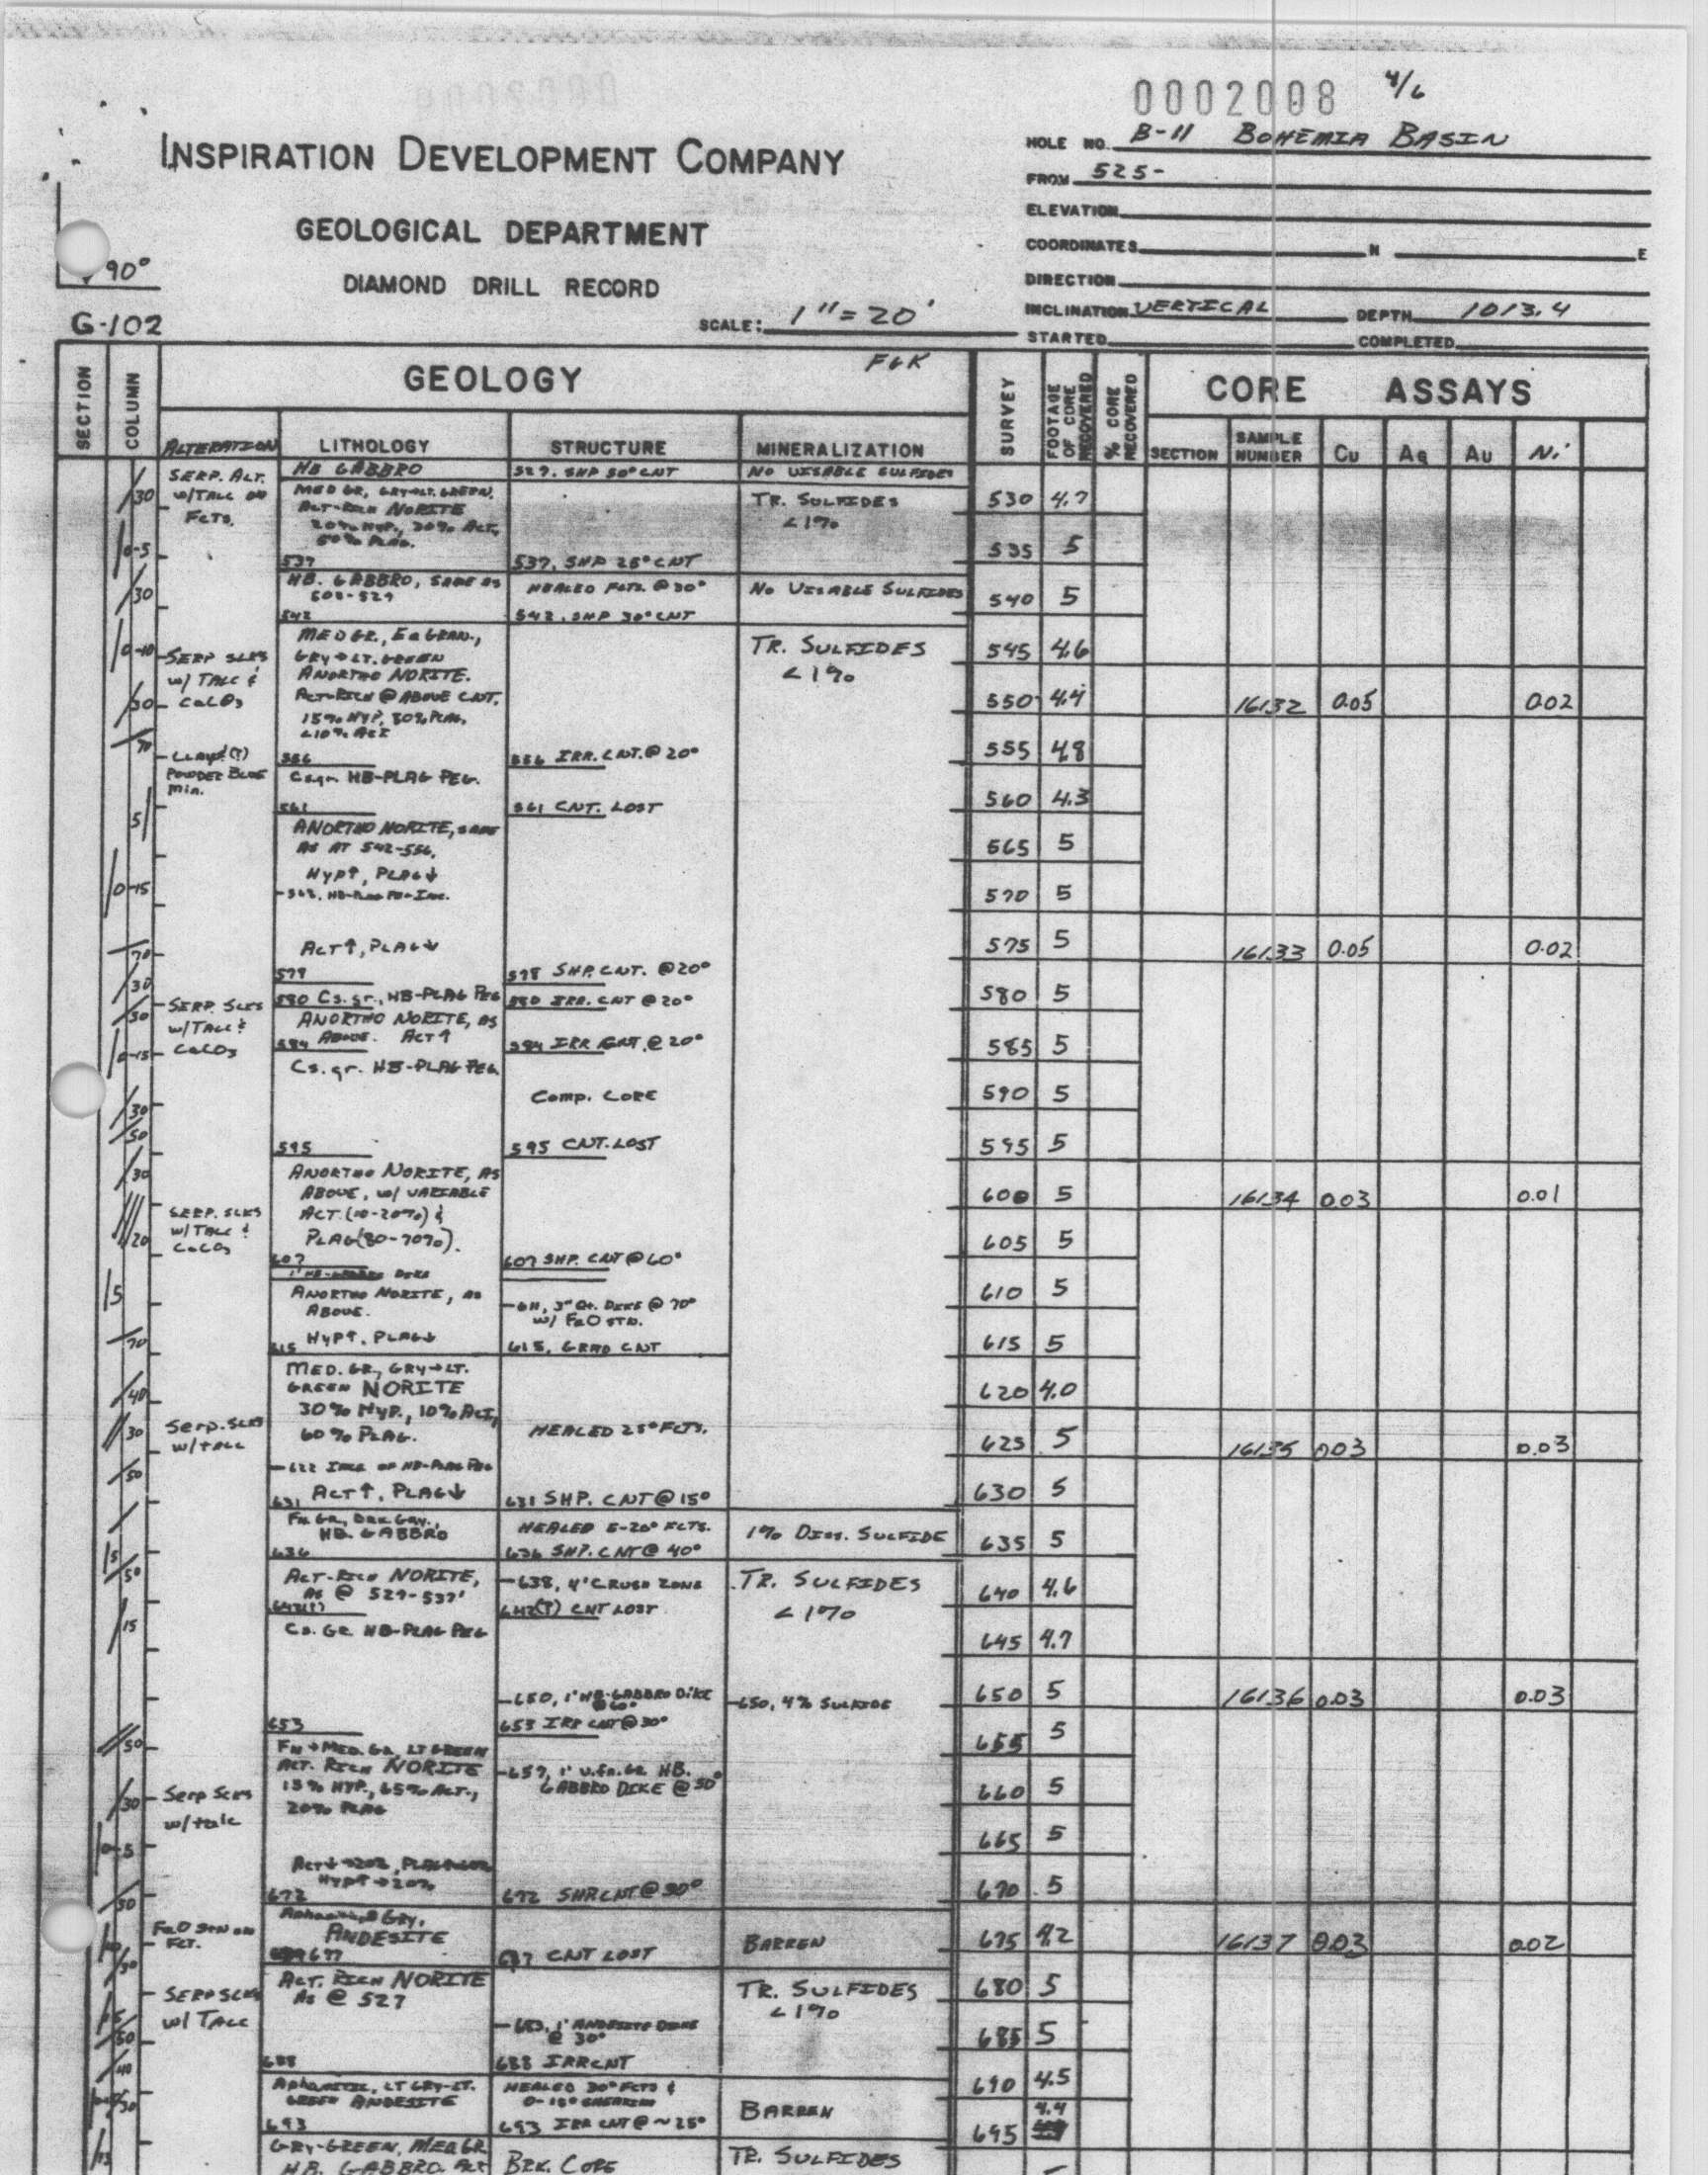 0002008 4/6
INSPIRATION DEVELOPMENT COMPANY
GEOLOGICAL DEPARTMENT
DIAMOND DRILL RECORD
90°
G-102
SCALE: 1"=20'
HOLE NO. B-11 BOHEMIA BASIN
FROM 525-
ELEVATION
COORDINATES N E
DIRECTION
INCLINATION VERTICAL DEPTH 1013.4
STARTED COMPLETED
SECTION
COLUMN
GEOLOGY
ALTERATION
LITHOLOGY
STRUCTURE
MINERALIZATION
SURVEY
FOOTAGE OF CORE RECOVERED
% CORE RECOVERED
CORE ASSAYS
SECTION
SAMPLE NUMBER
Cu
Ag
Au
Ni
SERP. ALT.
W/TALC ON
FCTS.
SERP SLKS
W/ TALC &
CaCO3
POWDER BLUE
MIN.
SERP. SLKS
W/TALC &
CaCO3
SERP. SLKS
W/TALC &
CaCO3
Serp. SLKS
W/TALC
Serp SLKS
w/talc
FeO STN ON
FCT.
SERP SLKS
W/ TALC
HB GABBRO
MED GR, GRY→LT. GREEN,
ACT-RICH NORITE
537
HB. GABBRO, SAME AS
508-529
542
MED GR., EQ GRAN.,
GRY→LT. GREEN
ANORTHO NORITE.
ACT-RICH @ ABOVE CNT.
15% HYP, 80% PLAG,
<10% ACT
556
Cs.gr. HB-PLAG PEG.
561
ANORTHO NORITE, SAME
AS AT 542-556.
HYP↑, PLAG↓
ACT↑, PLAG↓
579
580 Cs.gr., HB-PLAG PEG
ANORTHO NORITE, AS
ABOVE. ACT↑
584
Cs. gr. HB-PLAG PEG
595
ANORTHO NORITE, AS
ABOVE, W/ VARIABLE
ACT. (10-20%) &
PLAG (80-70%).
607
1' HB-GABBRO DIKE
ANORTHO NORITE, AS
ABOVE.
HYP↑, PLAG↓
615
MED. GR, GRY→LT.
GREEN NORITE
30% HYP., 10% ACT,
60% PLAG.
ACT↑, PLAG↓
631
FN GR, DRK GRY.,
HB. GABBRO
636
ACT-RICH NORITE,
AS @ 529-537'
642(?)
Cs. GR HB-PLAG PEG
653
FN→MED. GR, LT GREEN
ACT. RICH NORITE
15% HYP., 65% ACT.,
20% PLAG
HYP↑→20%
672
ANDESITE
677
ACT. RICH NORITE
AS @ 527
688
APHANITIC, LT GRY-LT.
GREEN ANDESITE
693
GRY-GREEN, MED GR
HB. GABBRO. ACT
529. SHP 50° CNT
537. SHP 25° CNT
HEALED FCTS. @ 30°
542. SHP 30° CNT
556 IRR. CNT. @ 20°
561 CNT. LOST
578 SHP. CNT. @ 20°
580 IRR. CNT @ 20°
584 IRR CNT. @ 20°
COMP. CORE
595 CNT. LOST
607 SHP. CNT @ 60°
-611, 3" Qt. DIKE @ 70°
W/ FeO STN.
615, GRAD CNT
HEALED 25° FCTS.
631 SHP. CNT @ 15°
HEALED 5-20° FCTS.
636 SHP. CNT @ 40°
-638, 4' CRUSH ZONE
642(?) CNT LOST
-650, 1' HB-GABBRO DIKE
@ 60°
653 IRR CNT @ 30°
-657, 1' v.fn.GR HB.
GABBRO DIKE @ 50°
672 SHP CNT @ 30°
677 CNT LOST
-683, 1' ANDESITE DIKE
@ 30°
688 IRR CNT
HEALED 30° FCTS &
693 IRR CNT @ ~25°
BRK. CORE
NO VISABLE SULFIDES
TR. SULFIDES
<1%
NO VISABLE SULFIDES
TR. SULFIDES
<1%
1% DISS. SULFIDE
TR. SULFIDES
<1%
-650, 4% SULFIDE
BARREN
TR. SULFIDES
<1%
BARREN
TR. SULFIDES
530 4.7
535 5
540 5
545 4.6
550 4.4 16132 0.05 0.02
555 4.8
560 4.3
565 5
570 5
575 5 16133 0.05 0.02
580 5
585 5
590 5
595 5
600 5 16134 0.03 0.01
605 5
610 5
615 5
620 4.0
625 5 16135 0.03 0.03
630 5
635 5
640 4.6
645 4.7
650 5 16136 0.03 0.03
655 5
660 5
665 5
670 5
675 4.2 16137 0.03 0.02
680 5
685 5
690 4.5
695 4.4